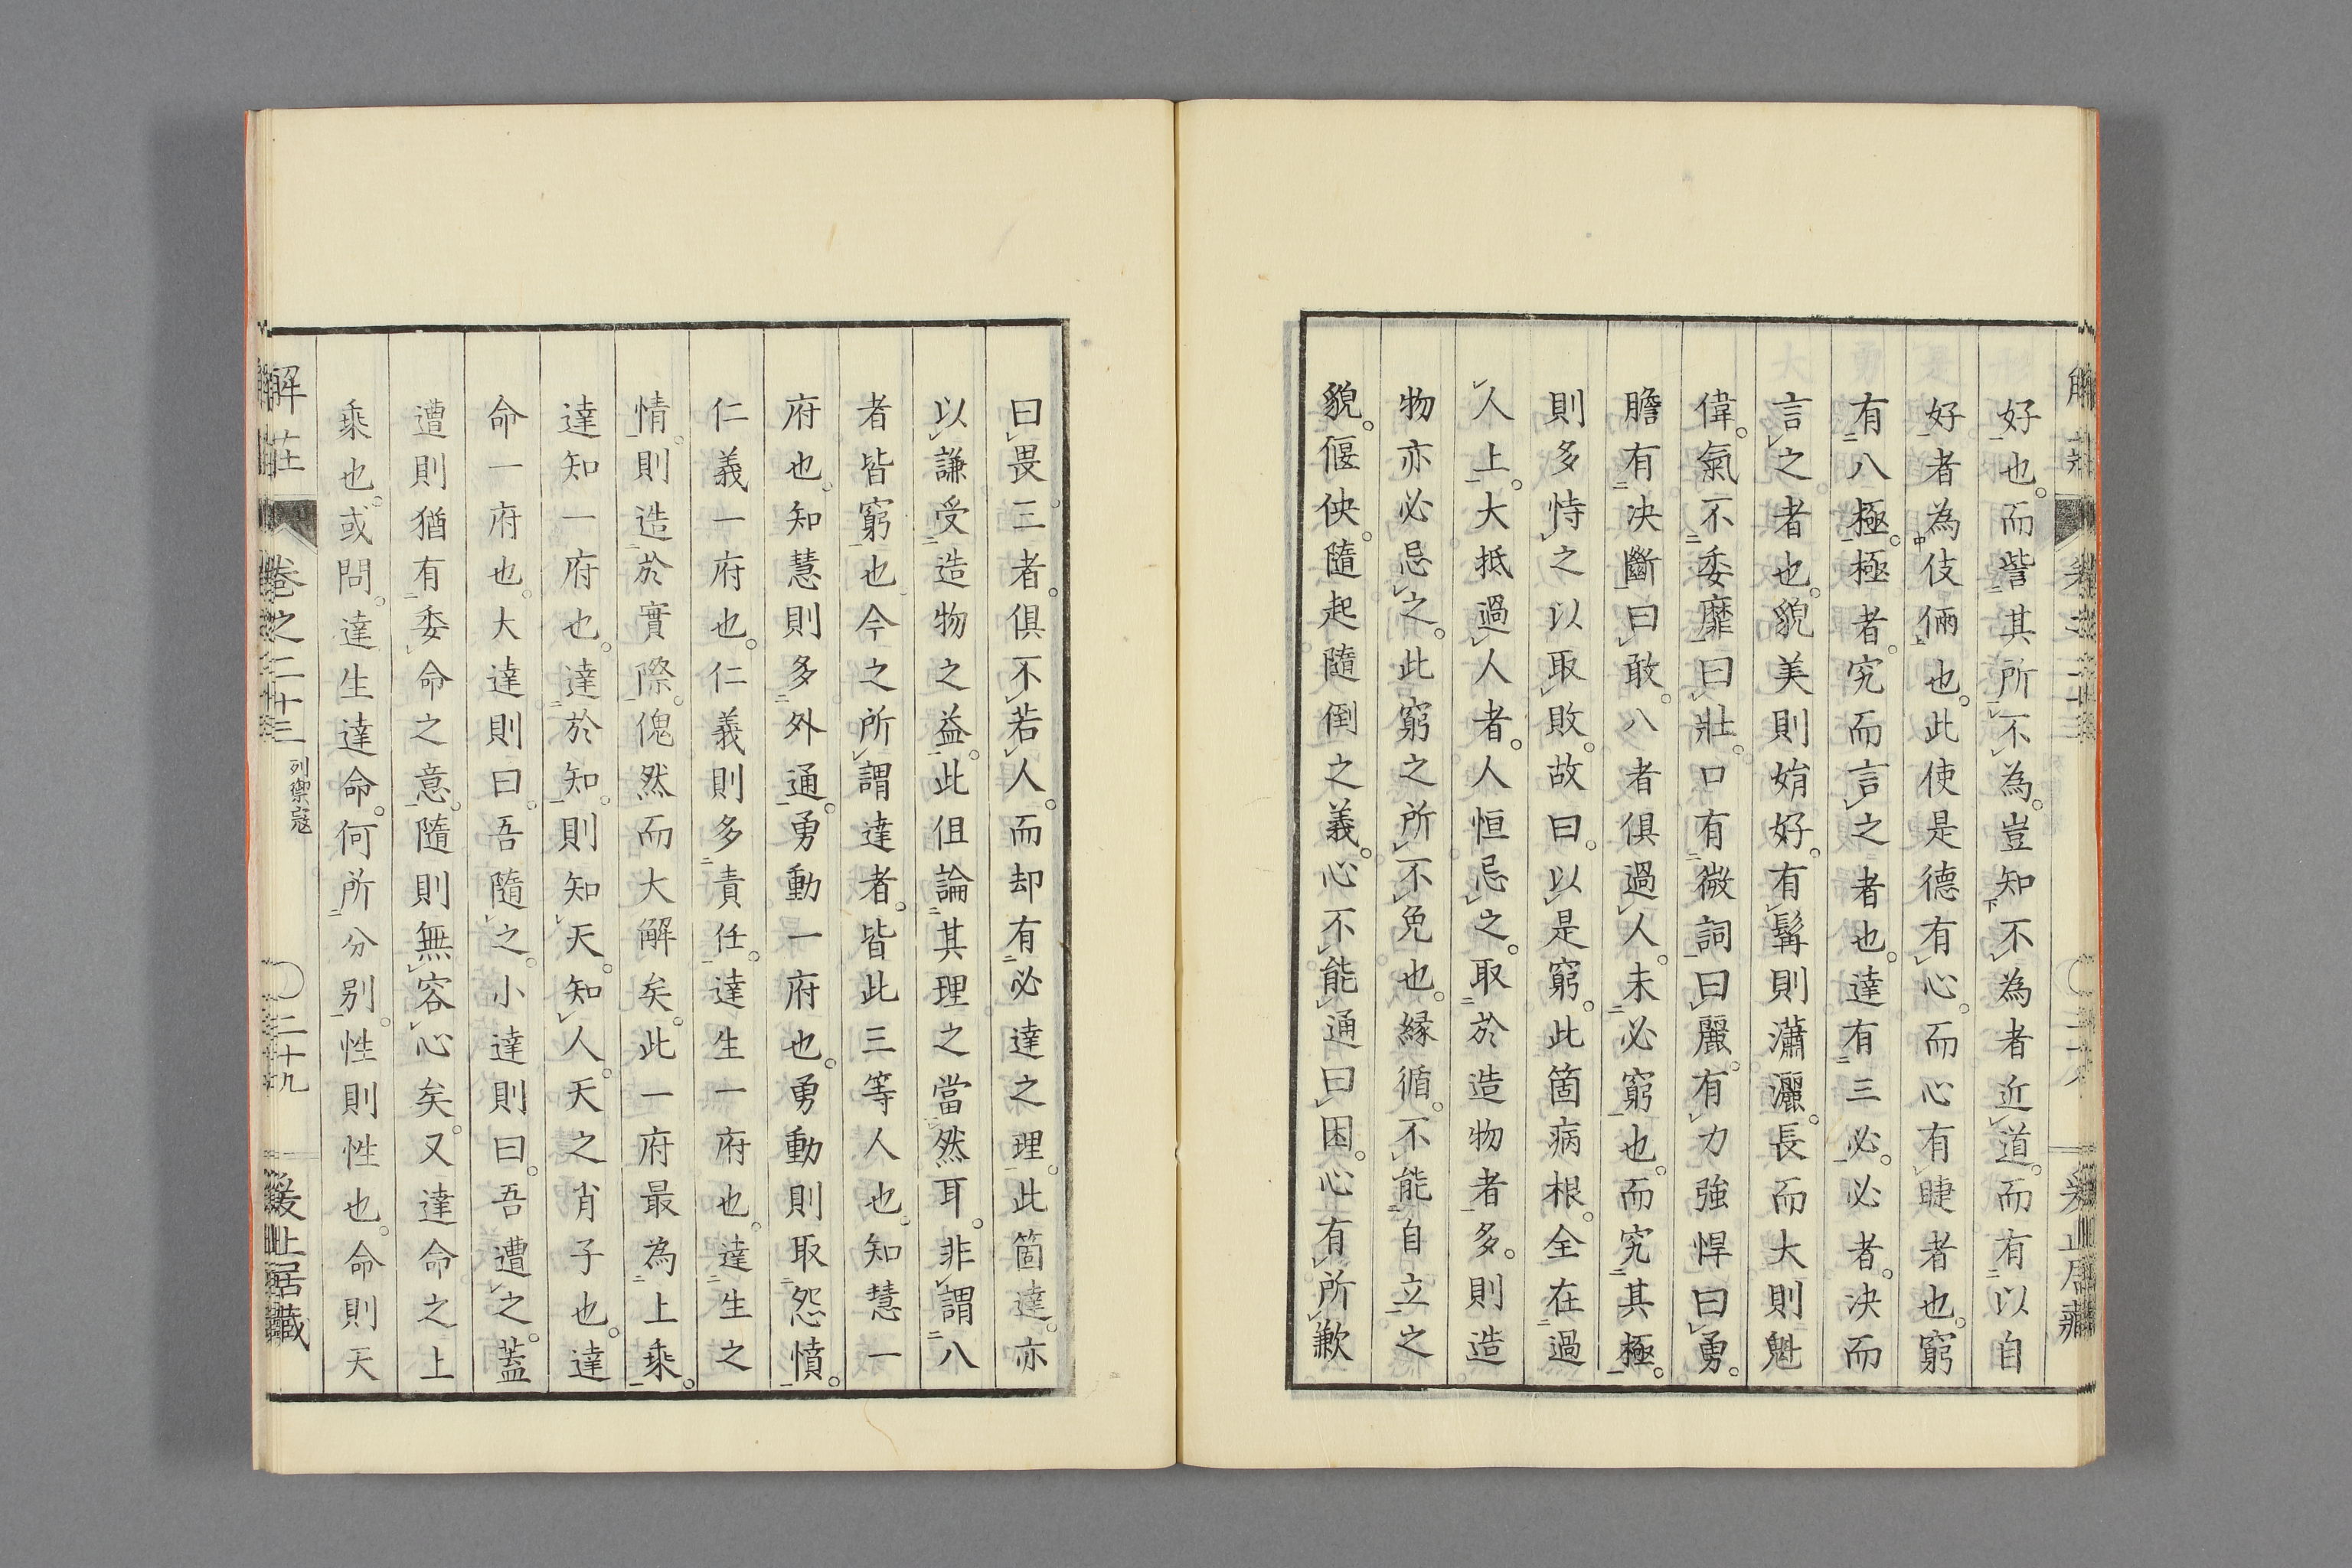 好也。而訾其所不為。豈知不為者近道。而有以自
好者為伎倆也。此使是德有心。而心有睫者也。窮
有八極。極者。究而言之者也。達有三必。必者。決而
言之者也。貌美則娋好。有髯則瀟灑。長而大則魁
偉。氣不委靡曰壯。口有微詞曰麗。有力強悍曰勇。
膽有決斷曰敢。八者俱過人。未必窮也。而究其極。
則多恃之以取敗。故曰。以是窮。此箇病根。全在過
人上。大抵過人者。人恒忌之。取於造物者多。則造
物亦必忌之。此窮之所不免也。緣循。不能自立之
貌。偃佒。隨起隨倒之義。心不能通曰困。心有所歉
曰畏。三者。俱不若人。而却有必達之理。此箇達。亦
以謙受造物之益。此但論其理之當然耳。非謂八
者皆窮也。今之所謂達者。皆此三等人也。知慧一
府也。知慧則多外通。勇動一府也。勇動則取怨憤。
仁義一府也。仁義則多責任。達生一府也。達生之
情。則造於實際。傀然而大解矣。此一府最為上乘。
達知一府也。達於知。則知天。知人。天之肖子也。達
命一府也。大達則曰。吾隨之。小達則曰。吾遭之。蓋
遭則猶有委命之意。隨則無容心矣。又達命之上
乘也。或問。達生達命。何所分別。性則性也。命則天
解莊
卷之二十三
列禦寇
二十九
爰止居藏